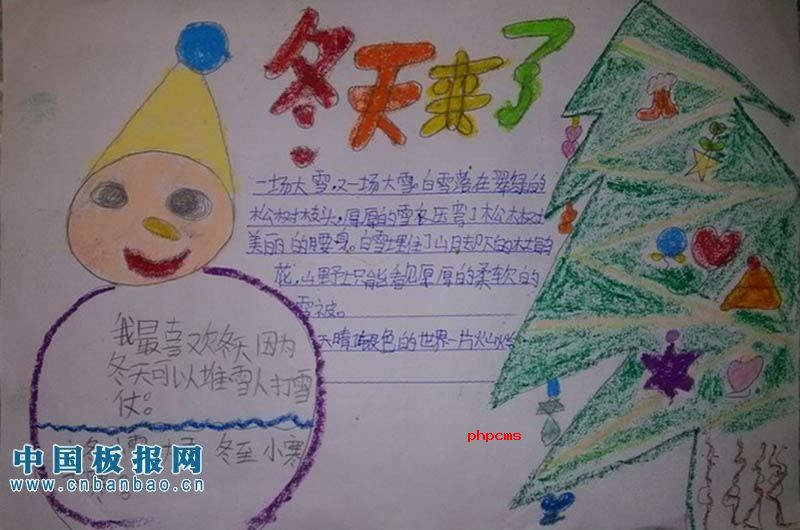 冬天来了
一场大雪,又一场大雪白雪落在翠绿的
松树枝头,厚厚的雪衣压弯了松树
美丽的腰身。白雪埋住了山
花,山野上只能看见厚厚的柔软的
雪被。
天晴 银色的世界一片
我最喜欢冬天因为
冬天可以堆雪人打雪
仗。
冬至 小寒
phpcms
中国板报网
www.cnbanbao.cn